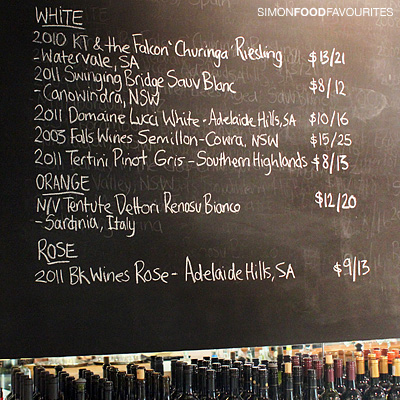 SIMONFOODFAVOURITES
WHITE
2010 KT & the Falcon 'Churinga' Riesling $13/21
- Watervale, SA
2011 Swinging Bridge Sauv Blanc $8/12
- Canowindra, NSW
2011 Domaine Lucci White - Adelaide Hills, SA $10/16
2003 Falls Wines Semillon - Cowra, NSW $15/25
2011 Tertini Pinot Gris - Southern Highlands $8/13
ORANGE
N/V Tentute Dettori Renosu Bianco $12/20
- Sardinia, Italy
ROSE
2011 BK Wines Rose - Adelaide Hills, SA $9/13